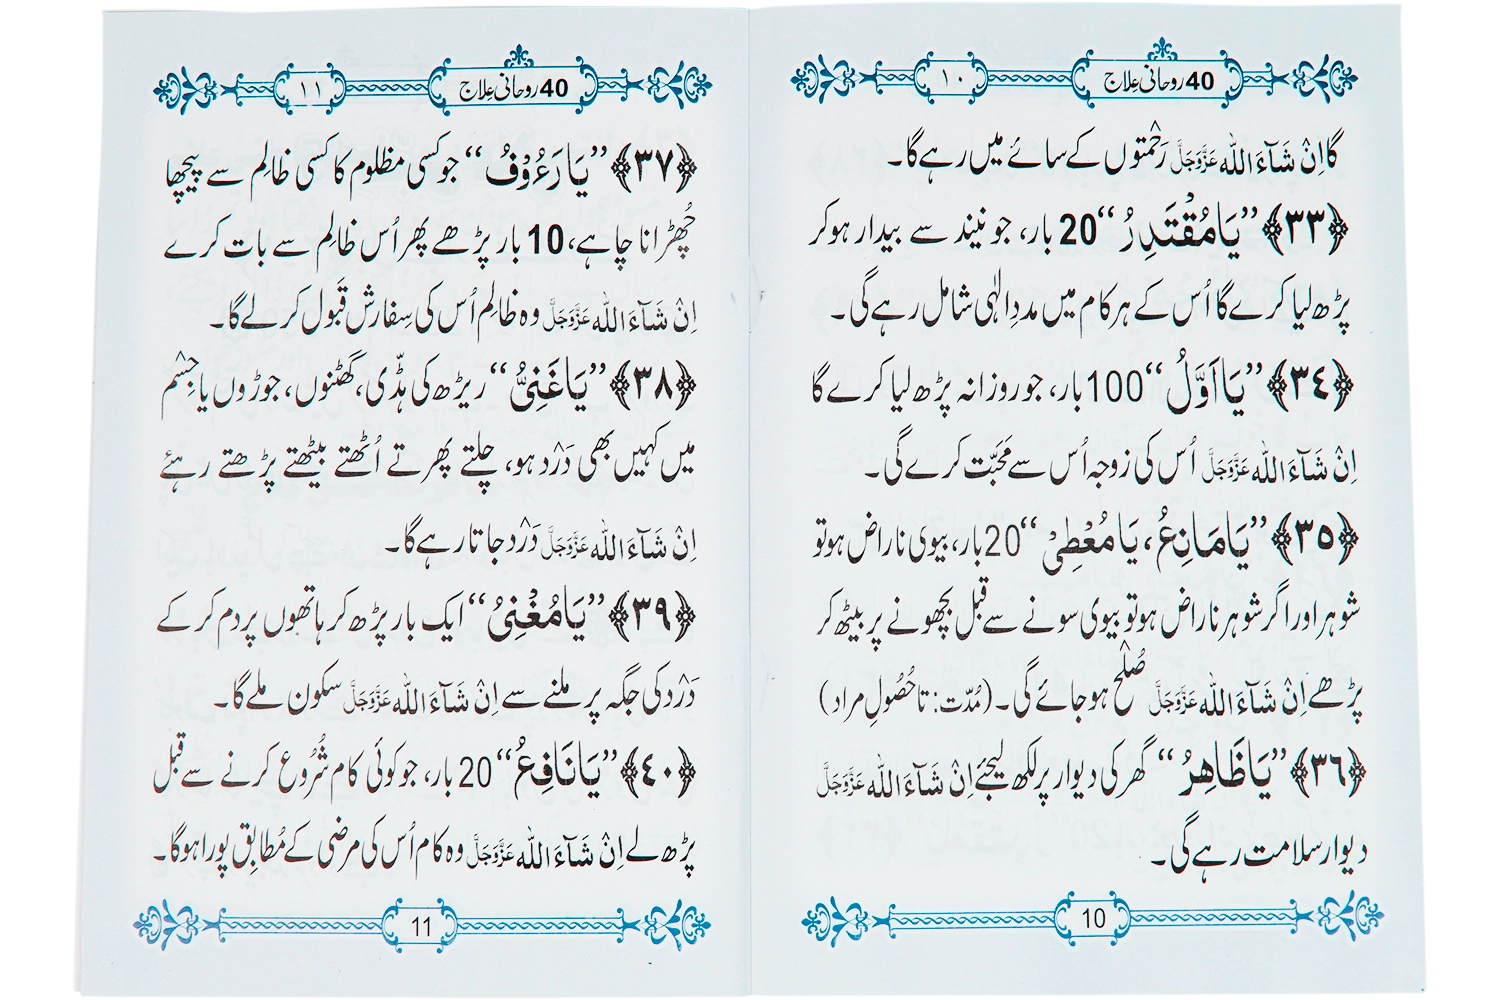 40 روحانی علاج
۱۰
گا اِنْ شَآءَ اللہ عَزَّوَجَلَّ رَحْمتوں کے سائے میں رہے گا۔
﴿۳۳﴾ ”یَا مُقْتَدِرُ“ 20 بار، جو نیند سے بیدار ہو کر
پڑھ لیا کرے گا اُس کے ہر کام میں مددِ الٰہی شامل رہے گی۔
﴿۳٤﴾ ”یَا اَوَّلُ“ 100 بار، جو روزانہ پڑھ لیا کرے گا
اِنْ شَآءَ اللہ عَزَّوَجَلَّ اُس کی زوجہ اُس سے مَحَبَّت کرے گی۔
﴿۳٥﴾ ”یَا مَانِعُ، یَا مُعْطِیْ“ 20 بار، بیوی ناراض ہو تو
شوہر اور اگر شوہر ناراض ہو تو بیوی سونے سے قبل بچھونے پر بیٹھ کر
پڑھے اِنْ شَآءَ اللہ عَزَّوَجَلَّ صُلْح ہو جائے گی۔ (مُدّت: تا حُصُولِ مراد)
﴿۳٦﴾ ”یَا ظَاهِرُ“ گھر کی دیوار پر لکھ لیجئے اِنْ شَآءَ اللہ عَزَّوَجَلَّ
دیوار سلامت رہے گی۔
10
40 روحانی علاج
۱۱
﴿۳۷﴾ ”یَا رَءُوْفُ“ جو کسی مظلوم کا کسی ظالِم سے پیچھا
چُھڑانا چاہے، 10 بار پڑھے پھر اُس ظالِم سے بات کرے
اِنْ شَآءَ اللہ عَزَّوَجَلَّ وہ ظالِم اُس کی سِفارش قَبول کر لے گا۔
﴿۳۸﴾ ”یَا غَنِیُّ“ ریڑھ کی ہڈّی، گھٹنوں، جوڑوں یا جِسْم
میں کہیں بھی دَرْد ہو، چلتے پھرتے اُٹھتے بیٹھتے پڑھتے رہئے
اِنْ شَآءَ اللہ عَزَّوَجَلَّ دَرْد جاتا رہے گا۔
﴿۳۹﴾ ”یَا مُغْنِیُ“ ایک بار پڑھ کر ہاتھوں پر دم کر کے
دَرْد کی جگہ پر ملنے سے اِنْ شَآءَ اللہ عَزَّوَجَلَّ سکون ملے گا۔
﴿٤۰﴾ ”یَا نَافِعُ“ 20 بار، جو کوئی کام شُرُوع کرنے سے قبل
پڑھ لے اِنْ شَآءَ اللہ عَزَّوَجَلَّ وہ کام اُس کی مرضی کے مُطابِق پورا ہوگا۔
11